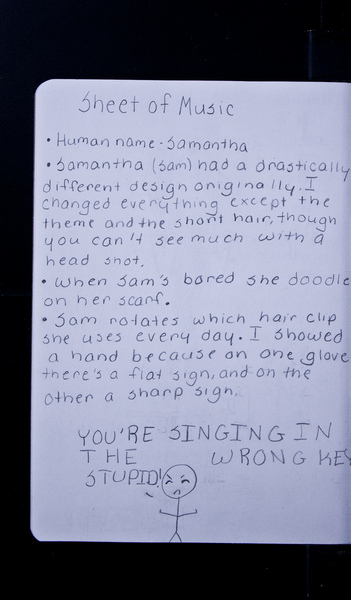 Sheet of Music
• Human name - Samantha
• Samantha (Sam) had a drastically
different design originally. I
changed everything except the
theme and the short hair, though
you can't see much with a
head shot.
• When Sam's bored she doodle
on her scarf.
• Sam rotates which hair clip
she uses every day. I showed
a hand because on one glove
there's a flat sign, and on the
other a sharp sign.
YOU'RE SINGING IN
THE WRONG KEY
STUPID!